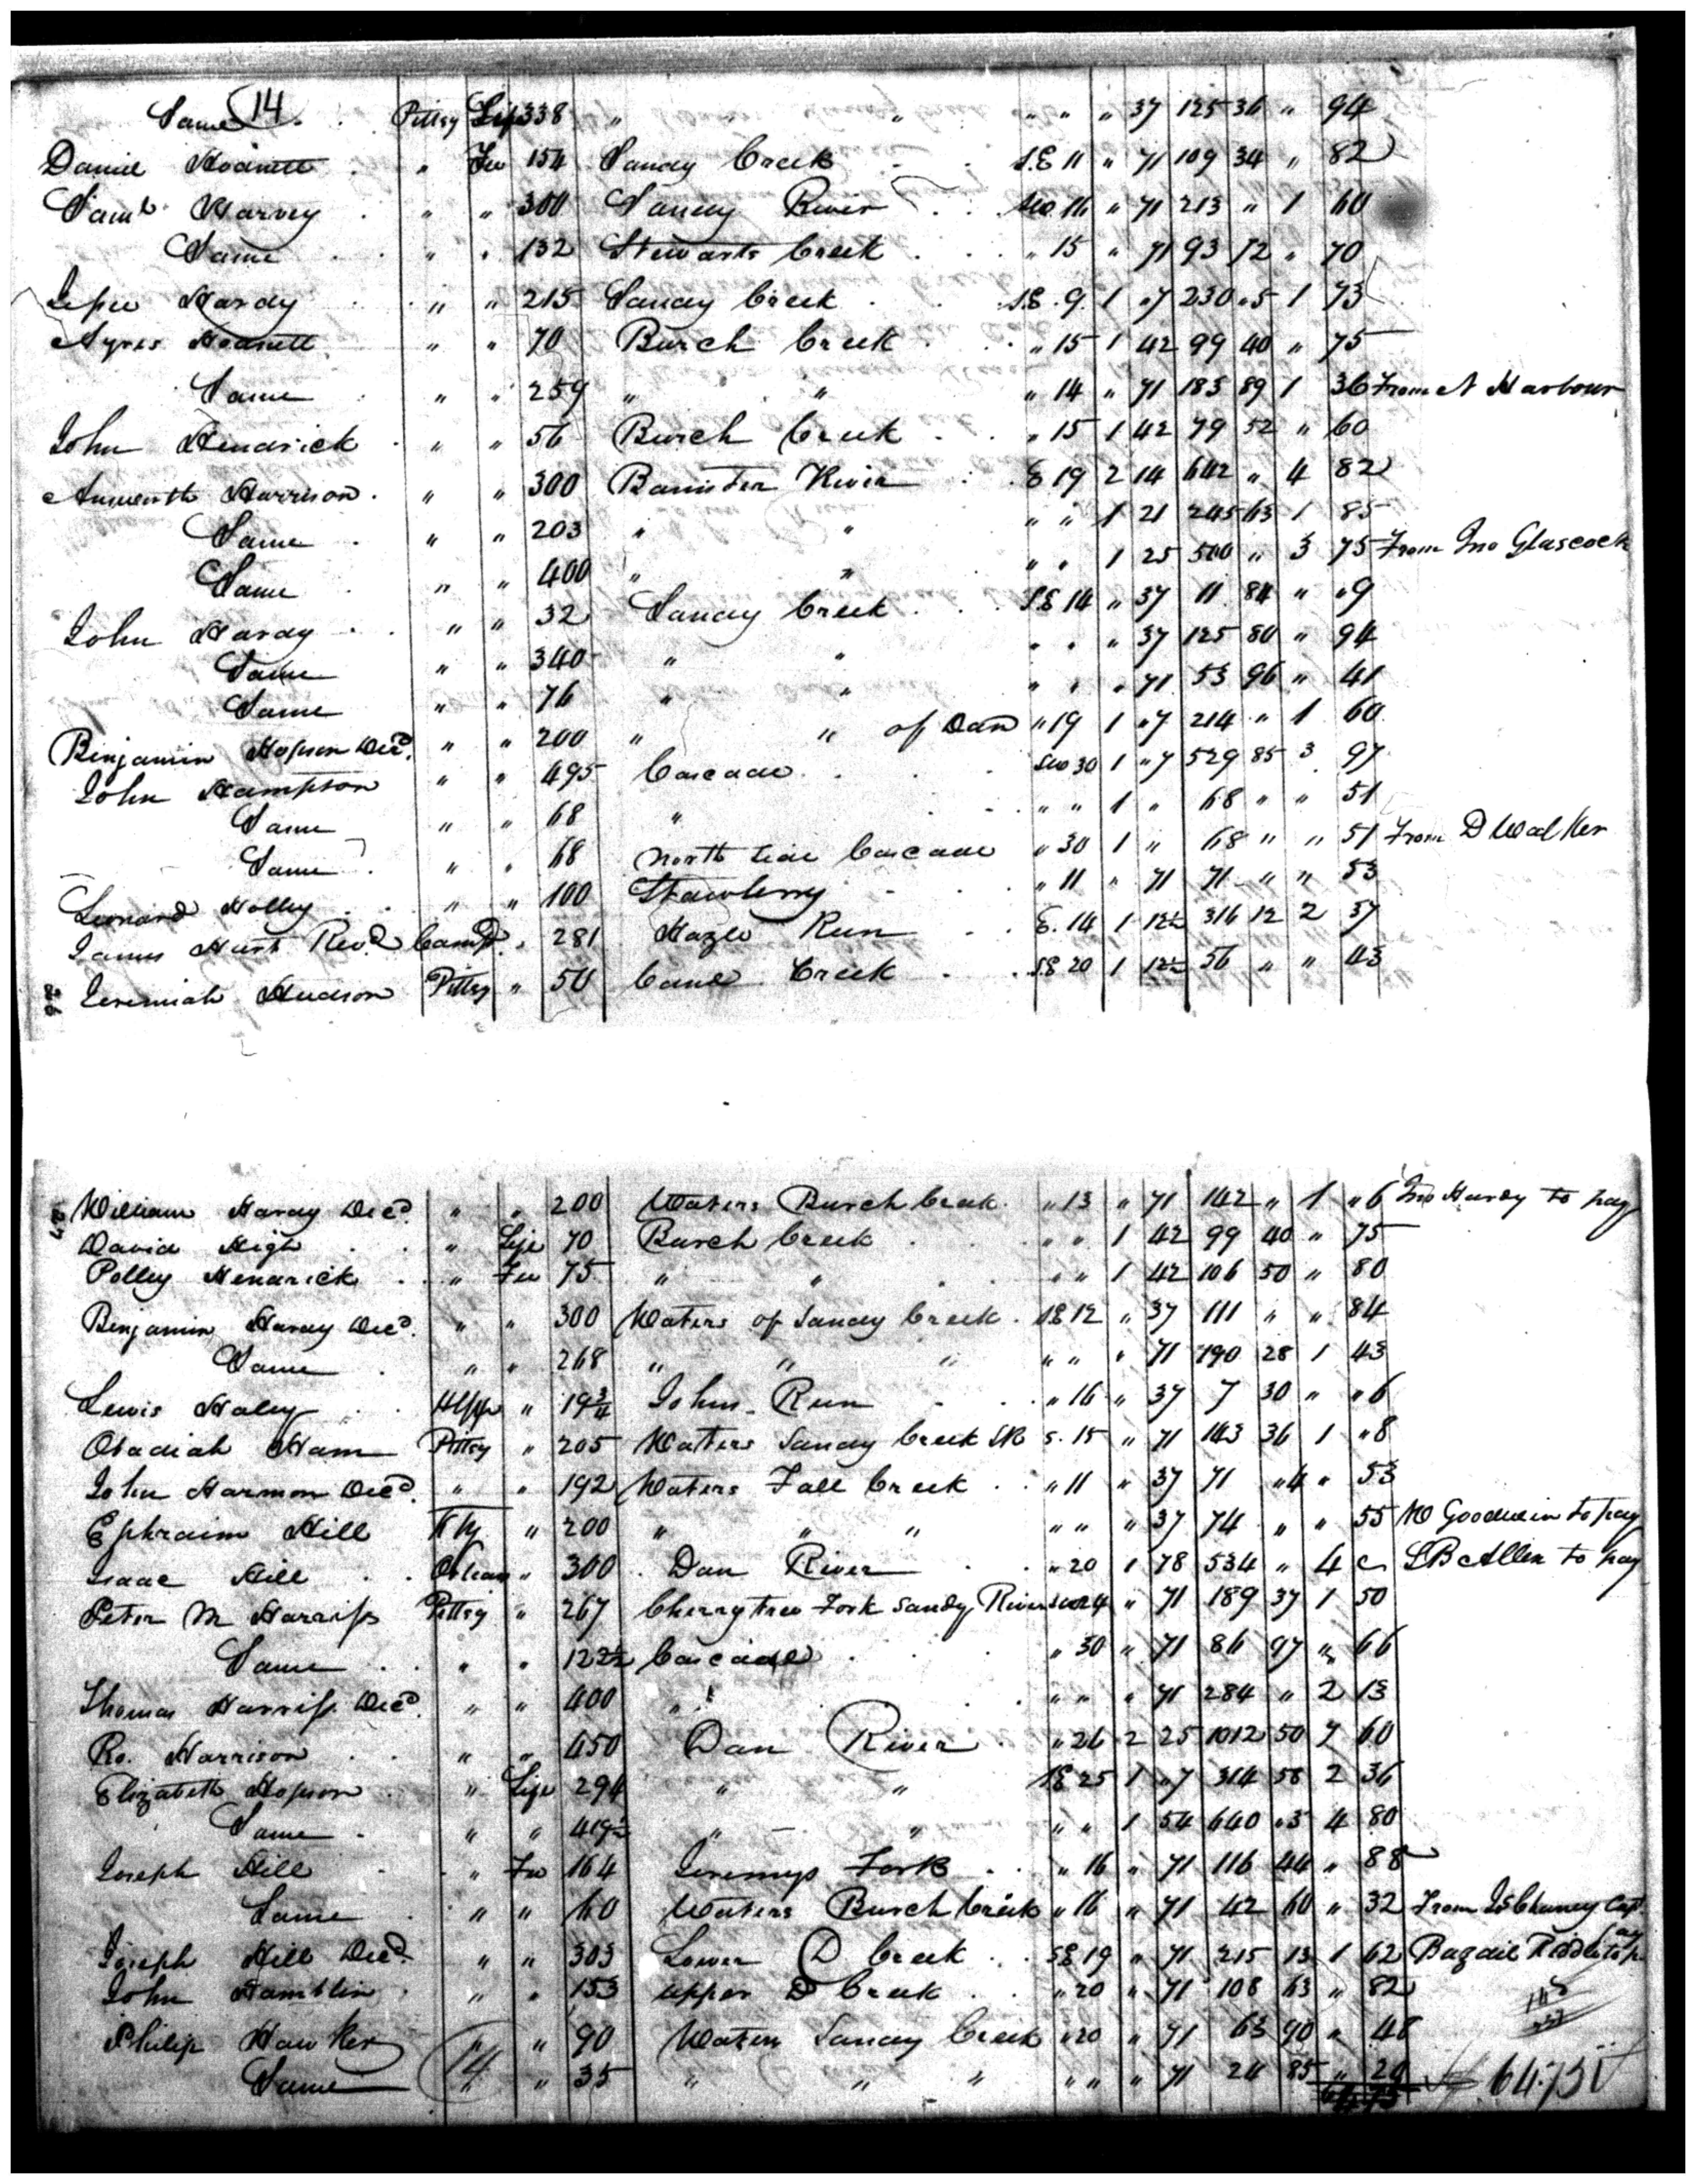 14
Same . . Pittsy Life 338 " " " " " 37 125 36 " 94
Daniel Hodnett . " Fee 154 Sandy Creek . . S.E 11 " 71 109 34 " 82
Saml Harvey . " " 300 Sandy River . . SW 16 " 71 213 " 1 60
Same . . " " 132 Stewarts Creek . . " 15 " 71 93 72 " 70
Hardy . . " " 215 Sandy Creek . . S.E 9 1 "7 230 "5 1 73
Ayres Hodnett " " 70 Burch Creek . . " 15 1 42 99 40 " 75
Same . " " 259 " " " 14 " 71 183 89 1 36 From A Harbour
John Hendrick . " " 56 Burch Creek . . " 15 1 42 79 52 " 60
Ainsworth Harrison . " " 300 Banister River . . E 19 2 14 642 " 4 82
Same . " " 203 " " " " 1 21 245 63 1 85
Same . " " 400 " " " " 1 25 500 " 3 75 From Jno Glascock
John Hardy . . " " 32 Sandy Creek . . S.E 14 " 37 11 84 " "9
Same " " 340 " " " " " 37 125 80 " 94
Same " " 76 " " " " " 71 53 96 " 41
Benjamin Hopson Decd. " " 200 " " of Dan " 19 1 "7 214 " 1 60
John Hampton " " 495 Cascade . . . SW 30 1 "7 529 85 3 97
Same " " 68 " . . " " 1 " 68 " " 51
Same . " " 68 North side Cascade " 30 1 " 68 " " 51 From D Walker
Leonard Holley . . " " 100 Strawberry . . " 11 " 71 71 " " 53
James Hurt Revd Camp. " 281 Hazle Run . . E. 14 1 12½ 316 12 2 37
Jeremiah Hudson Pittsy " 50 Cane Creek . . S.E 20 1 12½ 56 " " 43
William Hardy Decd. " " 200 Waters Burch Creek . " 13 " 71 142 " 1 "6 Jno Hardy to pay
David High . . " Life 70 Burch Creek . . " " 1 42 99 40 " 75
Polley Hendrick . . " Fee 75 " " . " " 1 42 106 50 " 80
Benjamin Hardy Decd. " " 300 Waters of Sandy Creek . S.E 12 " 37 111 " " 84
Same . " " 268 " " " " " " 71 190 28 1 43
Lewis Haley . . " 19¾ Johns Run . . " 16 " 37 7 30 " "6
Obadiah Ham Pittsy " 205 Waters Sandy Creek SR S. 15 " 71 143 36 1 "8
John Harmon Decd. " " 192 Waters Fall Creek . . " 11 " 37 71 "4 " 53
Ephraim Hill Ky " 200 " " " " " " 37 74 " " 55 W Goodwin to pay
Isaac Hill . . " 300 . Dan River . . " 20 1 78 534 " 4 " Allen to pay
Peter M Harriss Pittsy " 267 Cherrytree Fork Sandy River SW 24 " 71 189 37 1 50
Same . . " " 122½ Cascade . . " 30 " 71 86 97 " 66
Thomas Harriss Decd. " " 400 " . . " " " 71 284 " 2 13
Ro. Harrison . . " " 450 Dan River . " 26 2 25 1012 50 7 60
Elizabeth Hopson . " Life 294 " " S.E 25 1 "7 314 58 2 36
Same . " " 419½ " " " " 1 54 640 "3 4 80
Joseph Hill . . " Fee 164 Jeremys Fork . . " 16 " 71 116 44 " 88
Same . " " 60 Waters Burch Creek " 16 " 71 42 60 " 32 From Chaney
Joseph Hill Decd. " " 303 Lower D Creek . . S.E 19 " 71 215 13 1 62
John Hamblin . " " 153 upper D Creek . . " 20 " 71 108 63 " 82
Philip Hawker " " 90 Waters Sandy Creek " 20 " 71 63 90 " 48
Same " " 35 " " " " " " 71 24 85 "
14
64.75